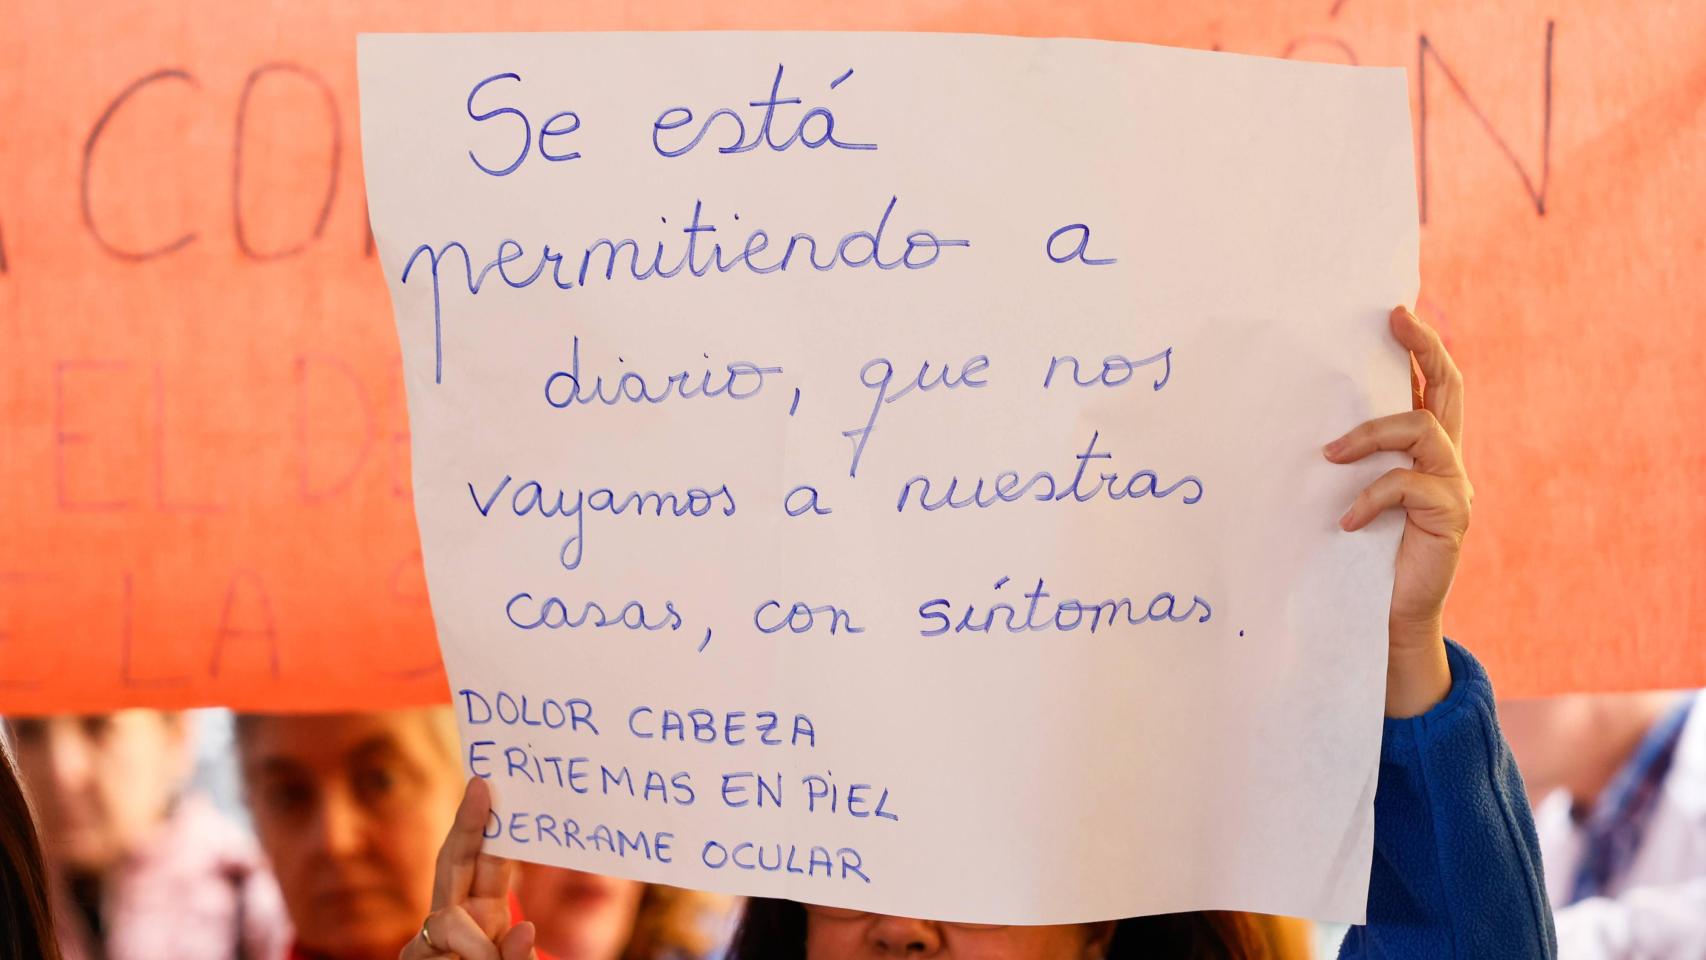 Se está
permitiendo a
diario, que nos
vayamos a nuestras
casas, con síntomas.
DOLOR CABEZA
ERITEMAS EN PIEL
DERRAME OCULAR
EL
LA